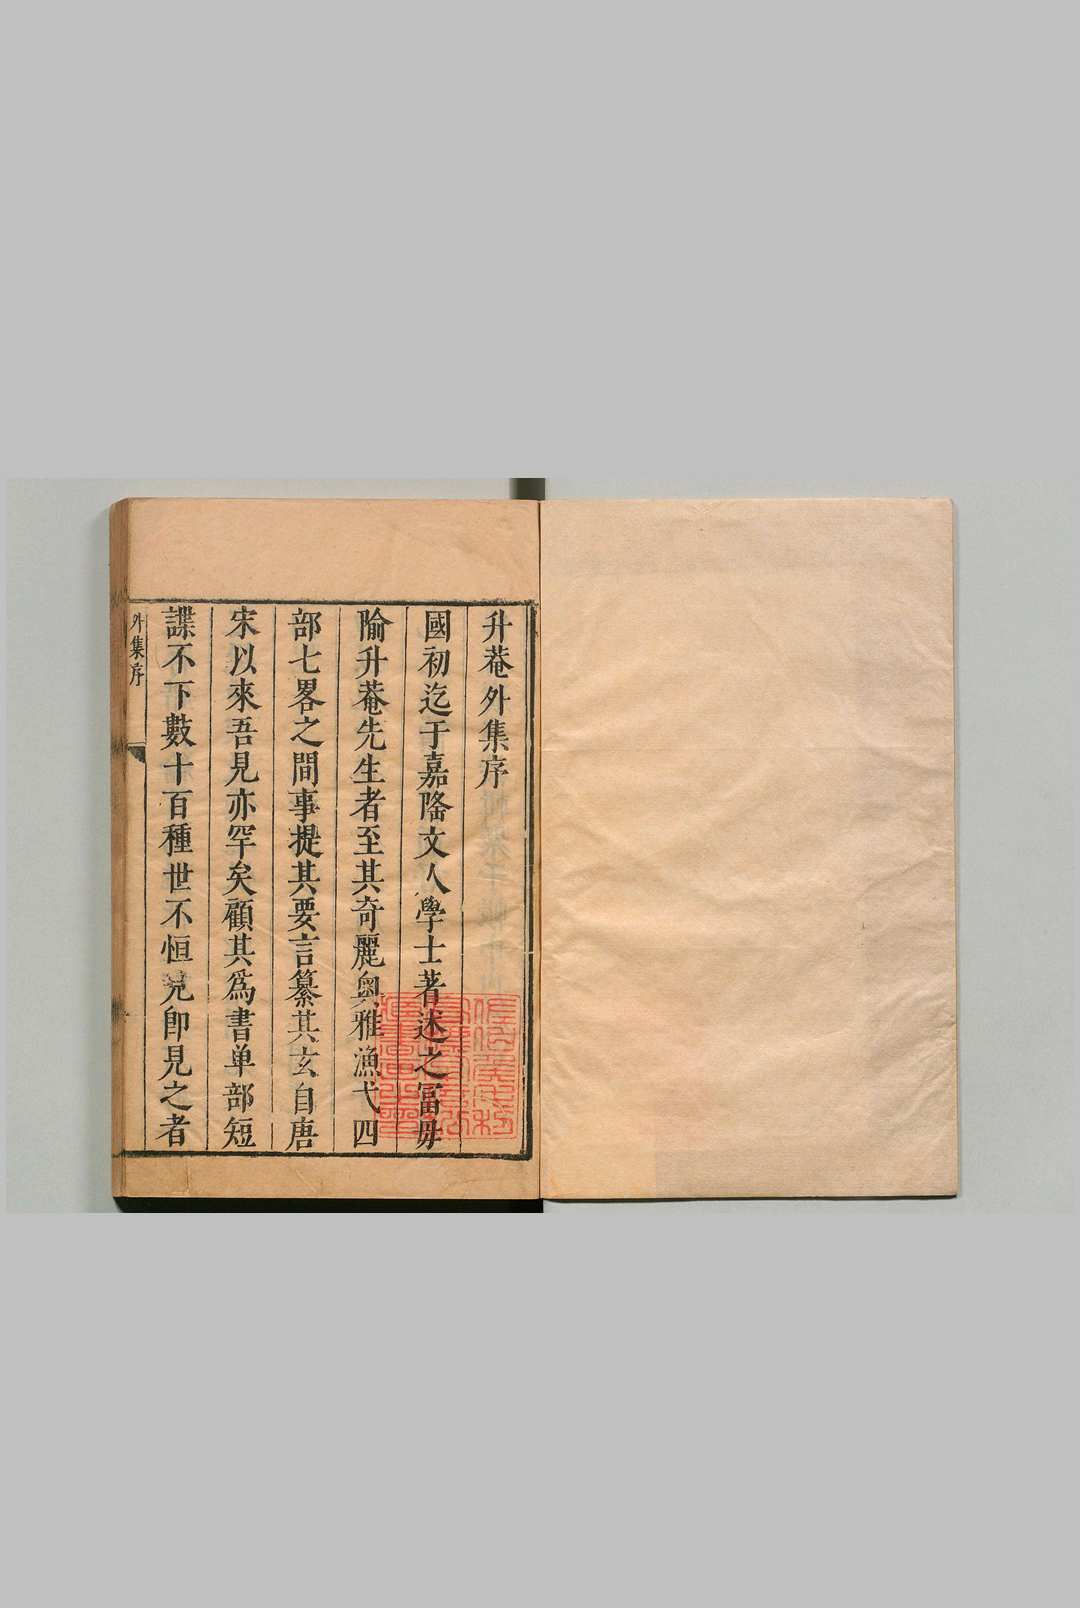 升菴外集序
國初迄于嘉隆文人學士著述之富毋
隃升菴先生者至其奇麗奧雅漁弋四
部七畧之間事提其要言纂其玄自唐
宋以來吾見亦罕矣顧其爲書单部短
諜不下數十百種世不恒見即見之者
外集序